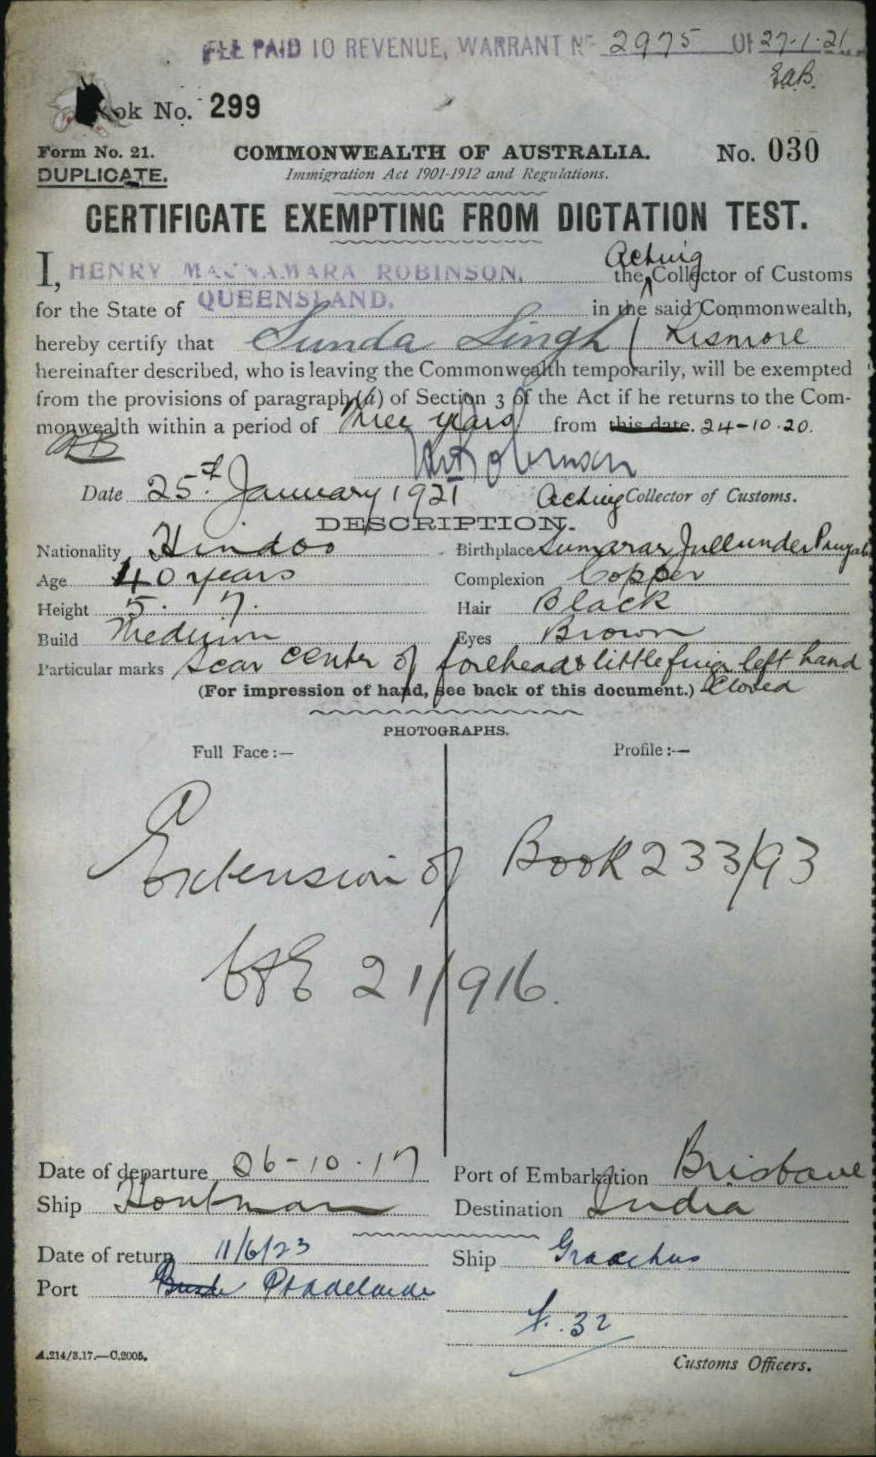 FEE PAID TO REVENUE, WARRANT No 2975 OF 27.1.21.
E.a.B.
ok No. 299
Form No. 21. COMMONWEALTH OF AUSTRALIA. No. 030
DUPLICATE. Immigration Act 1901-1912 and Regulations.
CERTIFICATE EXEMPTING FROM DICTATION TEST.
Acting
I, HENRY MACNAMARA ROBINSON, the Collector of Customs
for the State of QUEENSLAND. in the said Commonwealth,
hereby certify that Sunda Singh (Lismore
hereinafter described, who is leaving the Commonwealth temporarily, will be exempted
from the provisions of paragraph (a) of Section 3 of the Act if he returns to the Com-
monwealth within a period of three years from this date. 24-10.20.
HMRobinson
Date 25th January 1921 Acting Collector of Customs.
DESCRIPTION.
Nationality Hindoo Birthplace Sumarar Jullunder Punjab
Age 40 years Complexion Copper
Height 5. 7. Hair Black
Build Medium Eyes Brown
Particular marks Scar center of forehead & little finger left hand
(For impression of hand, see back of this document.) Closed
PHOTOGRAPHS.
Full Face:— Profile:—
Extension of Book 233/93
C&E 21/916.
Date of departure 26-10.17 Port of Embarkation Brisbane
Ship Houtman Destination India
Date of return 11/6/23 Ship Gracchus
Port Pt Adelaide
f. 32
A.214/3.17.—C.2005. Customs Officers.